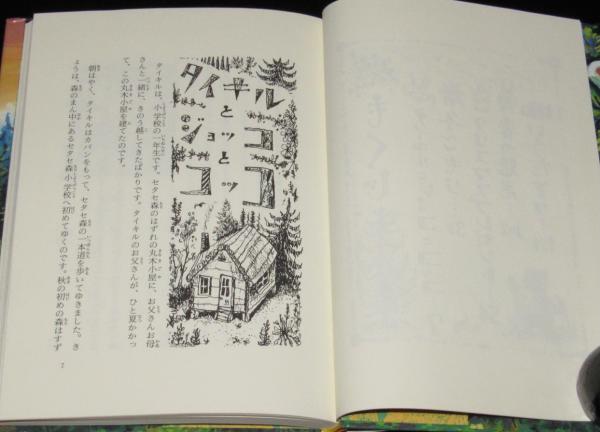 タイキル
と
タイキルは、小学校の一年生です。セタセ森のはずれの丸木小屋に、お父さんお母
さんと一緒に、きのう越してきたばかりです。タイキルのお父さんが、ひと夏かかっ
て、この丸木小屋を建てたのです。
朝はやく、タイキルはカバンをもって、セタセ森の一本道を歩いてゆきました。き
ょうは、森のまん中にあるセタセ森小学校へ初めてゆくのです。秋の初めの森はすず
7